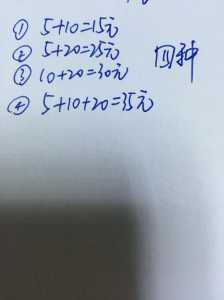 ① 5+10=15元
② 5+20=25元
③ 10+20=30元
四种
④ 5+10+20=35元